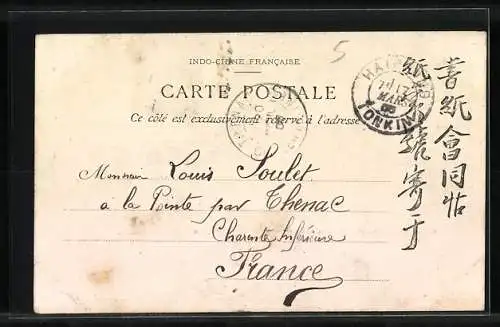 5
INDO-CHINE FRANÇAISE
CARTE POSTALE
Ce côté est exclusivement réservé à l'adresse
TONKIN
Monsieur Louis Soulet
à la Pointe par Thenac
Charente Inférieure
France
書紙會同帖
紙號寄于